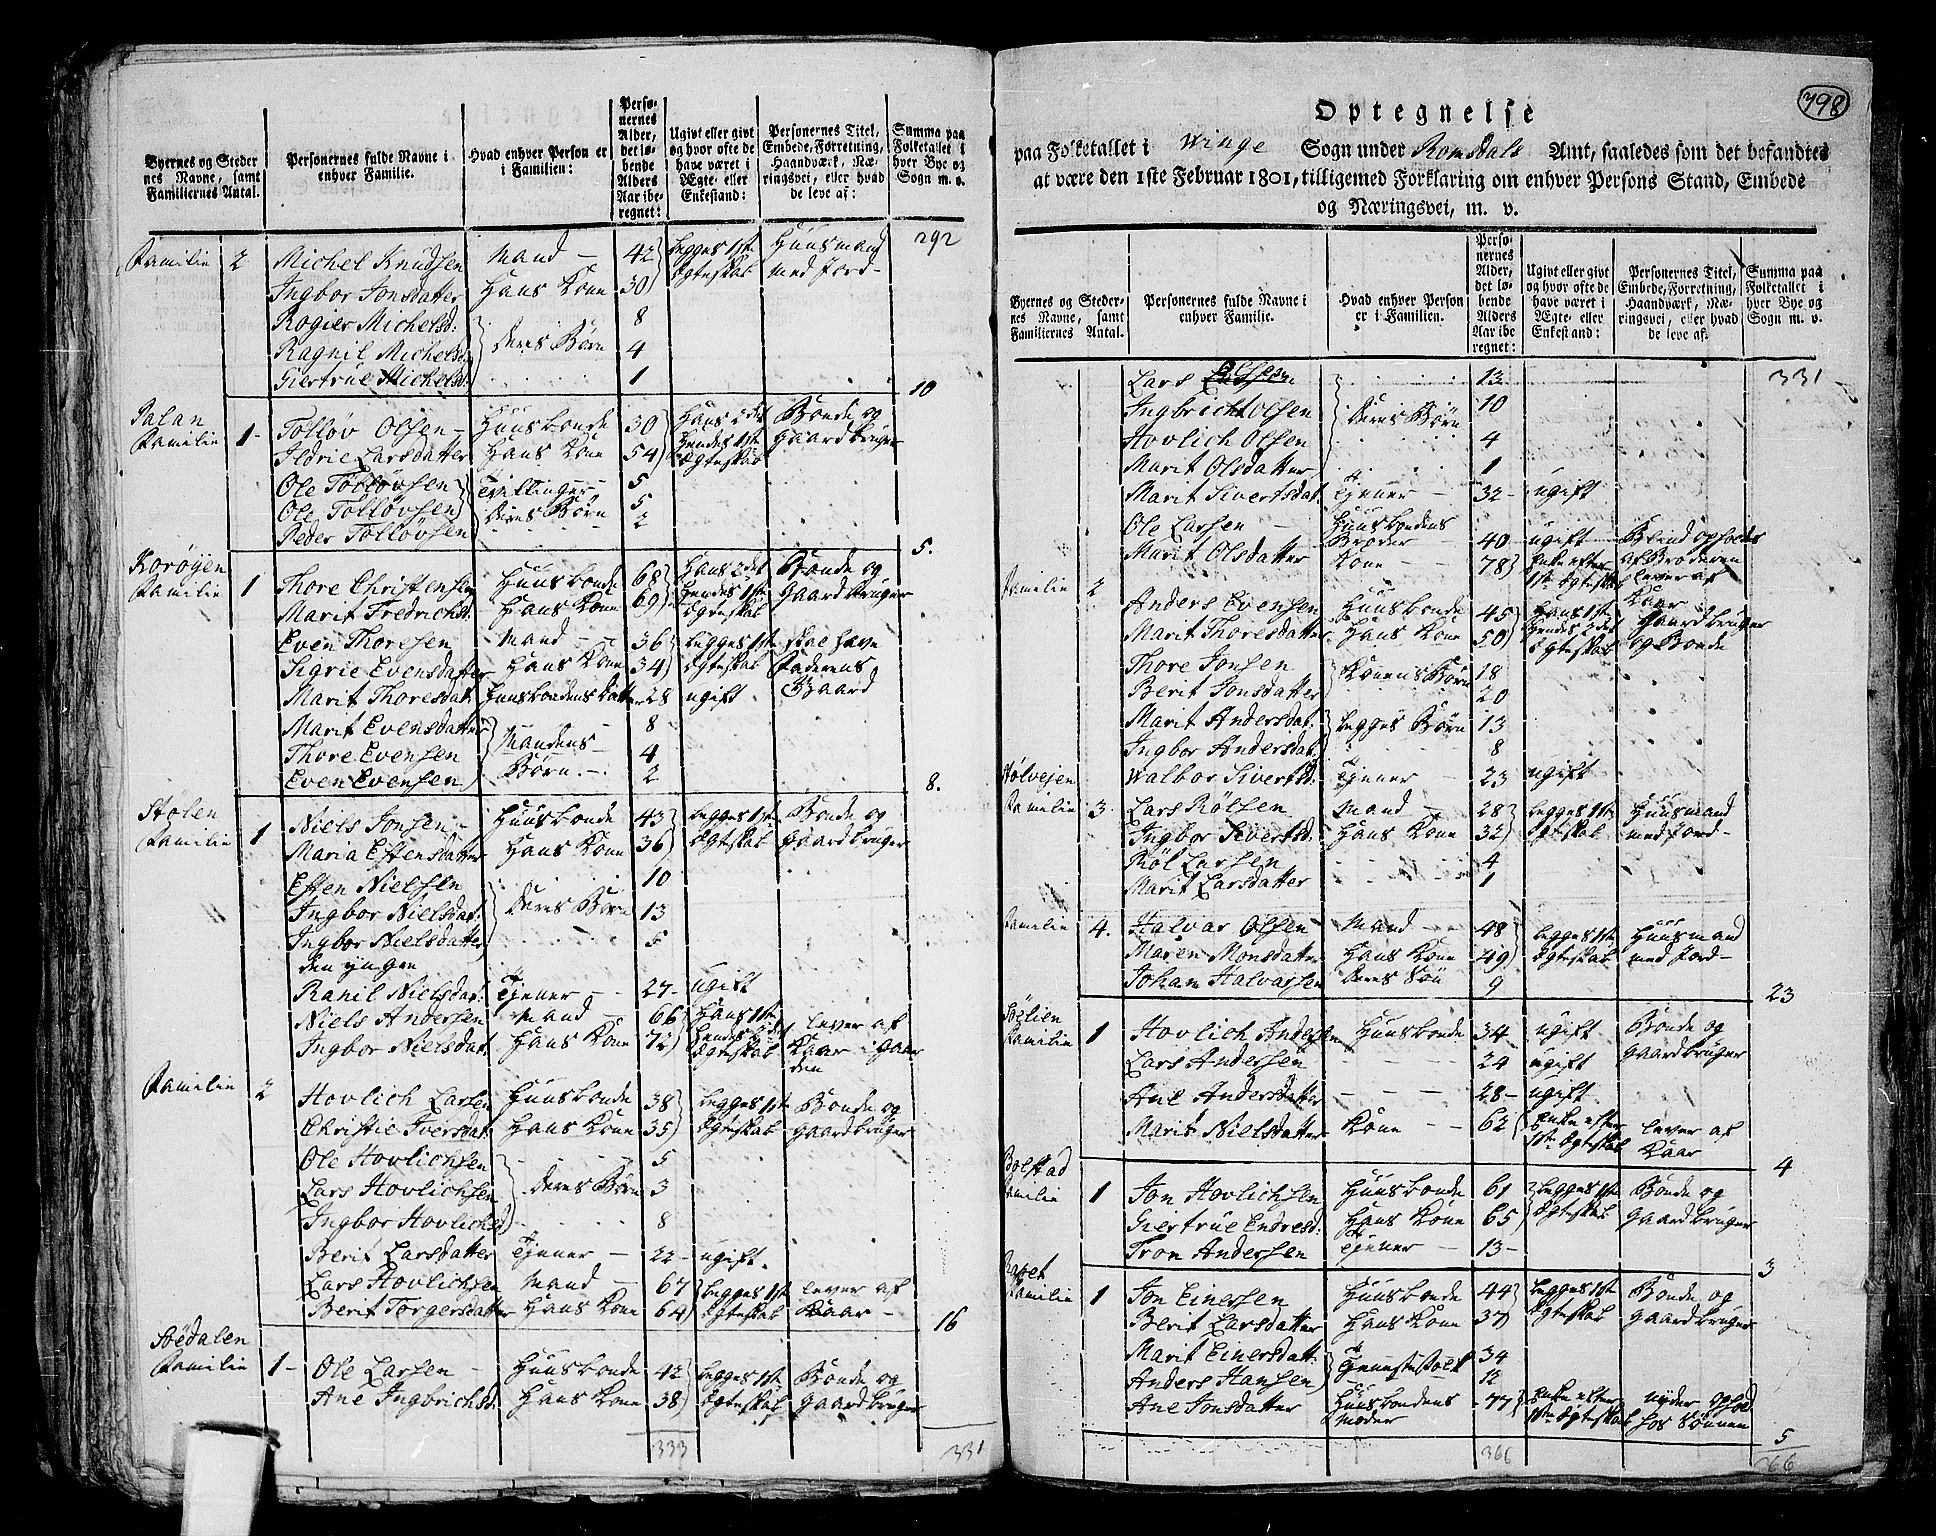 Byernes og Steder
nes Navne, samt
Familiernes Antal.
Personernes fulde Navne i
enhver Familie.
Hvad enhver Person er
i Familien:
Perso-
nernes
Alder,
det lø-
bende
Alders
Aar ibe-
regnet:
Ugivt eller givt
og hvor ofte de
have været i
Ægte- eller
Enkestand:
Personernes Titel,
Embede, Forretning,
Haandværk, Næ-
ringsvei, eller hvad
de leve af:
Summa paa
Folketallet i
hver Bye og
Sogn m. v.
292
Familie 2 Michel Knudsen Mand 42 begges 1ste Huusmand
Ingbor Jonsdatter Hans Kone 30 Ægteskab med Jord
Rogier Michelsd: 8
Ragnil Michelsd: deres Børn 4
Giertrue Michelsd: 1
10
Jalan
Familie 1 Tolløv Olsen Huusbonde 30 Hans 2det Bonde og
Ildrie Larsdatter Hans Kone 54 Hendes 1ste Gaardbruger
Ægteskab
Ole Tolløvsen Tvillinger 5
Ole Tolløvsen deres Børn 5
Peder Tolløvsen 2
5.
Korøyen
Familie 1 Thore Christensen Huusbonde 68 Hans 2det Bonde og
Marit Fredrichsd: Hans Kone 69 Hendes 1ste Gaardbruger
Ægteskab
Even Thoresen Mand 36 begges 1ste skal have
Sigrie Evensdatter Hans Kone 34 Ægteskab Faderens
Marit Thoresdat: Huusbondens Datter 28 ugift Gaard
Marit Evensdatter 8
Thore Evensen Mandens 4
Even Evensen Børn 2
8.
Stølen
Familie 1 Niels Jonsen Huusbonde 43 begges 1ste Bonde og
Maria Estensdatter Hans Kone 36 Ægteskab Gaardbruger
Esten Nielsen 10
Ingbor Nielsdat: deres Børn 13
Ingbor Nielsdatter 5
den yngre
Ranil Nielsdat: Tjener 27 ugift
Niels Andersen Mand 66 Hans 1ste lever af
Ingbor Nielsdat: Hans Kone 72 Hendes 2det Kaar i Gaar
Ægteskab den
Familie 2 Hovlich Larsen Huusbonde 38 begges 1ste Bonde og
Christie Iversdat: Hans Kone 35 Ægteskab Gaardbruger
Ole Hovlichsen 5
Lars Hovlichsen deres Børn 3
Ingbor Hovlichsd: 8
Berit Larsdatter Tjener 22 ugift
Lars Hovlichsen Mand 67 begges 1ste lever af
Berit Torgersdatter Hans Kone 64 Ægteskab Kaar
16
Stødalen
Familie 1 Ole Larsen Huusbonde 42 begges 1ste Bonde og
Ane Ingbrichsd: Hans Kone 38 Ægteskab Gaardbruger
333 331
398
Optegnelse
paa Folketallet i Winge Sogn under Romsdals Amt, saaledes som det befandtes
at være den 1ste Februar 1801, tilligemed Forklaring om enhver Persons Stand, Embede
og Næringsvei, m. v.
Byernes og Steder-
nes Navne, samt
Familiernes Antal.
Personernes fulde Navne i
enhver Familie.
Hvad enhver Person
er i Familien.
Perso-
nernes
Alder,
det lø-
bende
Alders
Aar ibe
regnet:
Ugivt eller givt
og hvor ofte de
have været i
Ægte- eller
Enkestand:
Personernes Titel,
Embede, Forretning,
Haandværk, Næ-
ringsvei, eller hvad
de leve af.
Summa paa
Folketallet i
hver Bye og
Sogn m. v.
331
Lars Olsen 13
Ingbricht Olsen deres Børn 10
Hovlich Olsen 4
Marit Olsdatter 1
Marit Sivertsdat: Tjener 32 ugift
Ole Larsen Huusbondens
Broder 40 ugift Blind opholdes
Marit Olsdatter Kone 78 Enke efter af Broderen
1ste Ægteskab lever af
Kaar
Familie 2 Anders Evensen Huusbonde 45 Hans 1ste Gaardbruger
Marit Thoresdatter Hans Kone 50 Hendes 2det og Bonde
Ægteskab
Thore Jonsen Konens Børn 18
Berit Jonsdatter 20
Marit Andersdat: begges Børn 13
Ingbor Andersdat: 8
Walbor Sivertsd: Tjener 23 ugift
Hølvejen
Familie 3. Lars Rølsen Mand 28 begges 1ste Huusmand
Ingbor Sivertsd: Hans Kone 32 Ægteskab med Jord
Røl Larsen 4
Marit Larsdatter 1
Familie 4. Halvar Olsen Mand 48 begges 1ste Huusmand
Maren Monsdatter Hans Kone 49 Ægteskab med Jord
Johan Halvarsen deres Søn 9
23
Familie 1 Hovlich Andersen Huusbonde 34 ugift Bonde og
Lars Andersen 24 ugift Gaardbruger
Ane Andersdatter 28 ugift
Marit Nielsdatter Kone 62 Enke efter lever af
1ste Ægteskab Kaar
4
Bolstad
Familie 1 Jon Hovlichsen Huusbonde 61 begges 1ste Bonde og
Giertrue Endresd: Hans Kone 65 Ægteskab Gaardbruger
Tron Andersen Tjener 13
3
Familie 1 Jon Einersen Huusbonde 44 begges 1ste Bonde og
Berit Larsdatter Hans Kone 37 Ægteskab Gaardbruger
Marit Einersdatt: Tjenestefolk 34
Anders Hansen 12
Ane Jonsdatter Huusbondens 77 Enke efter nyder ophold
Moder 1ste Ægteskab hos Sønnen
5
366 366